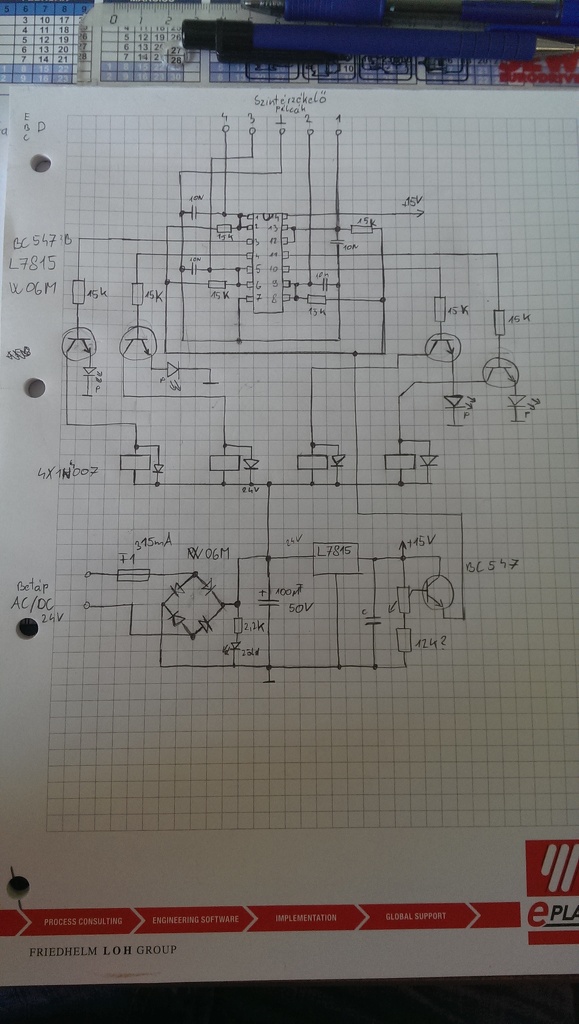 Szintérzékelő
pálcák
4 3 ⊥ 2 1
E
B D
C
10N
15K
+15V
15K
10N
1 U 14
2 13
3 12
4 11
5 10
6 9
7 8
BC547B
L7815
W06M
10N
15K
10N
15K
15K
15K
15K
15K
P
P
P
P
4X1N4007
24V
315mA
F1
W06M
24V
L7815
+15V
BC547
Betáp
AC/DC
24V
+ 100µF
50V
2,2K
zöld
C
12K?
PROCESS CONSULTING
ENGINEERING SOFTWARE
IMPLEMENTATION
GLOBAL SUPPORT
ePLA
FRIEDHELM LOH GROUP